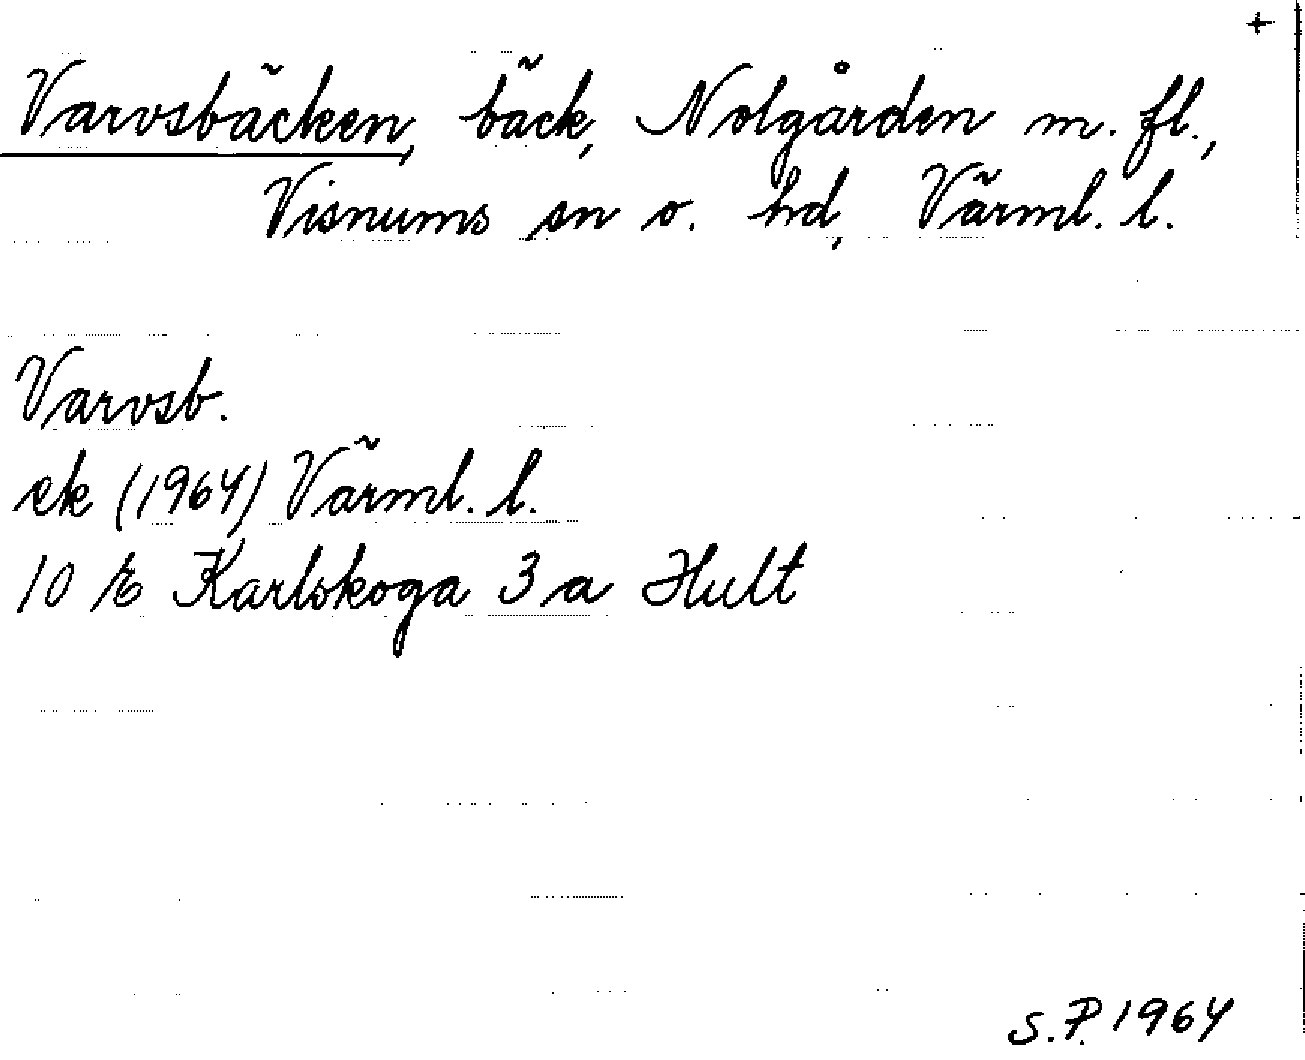 +
Varvsbäcken, bäck, Nolgården m. fl.,
Visnums sn o. hd, Värml. l.
Varvsb.
ek (1964) Värml. l.
10 E Karlskoga 3 a Hult
S.P. 1964